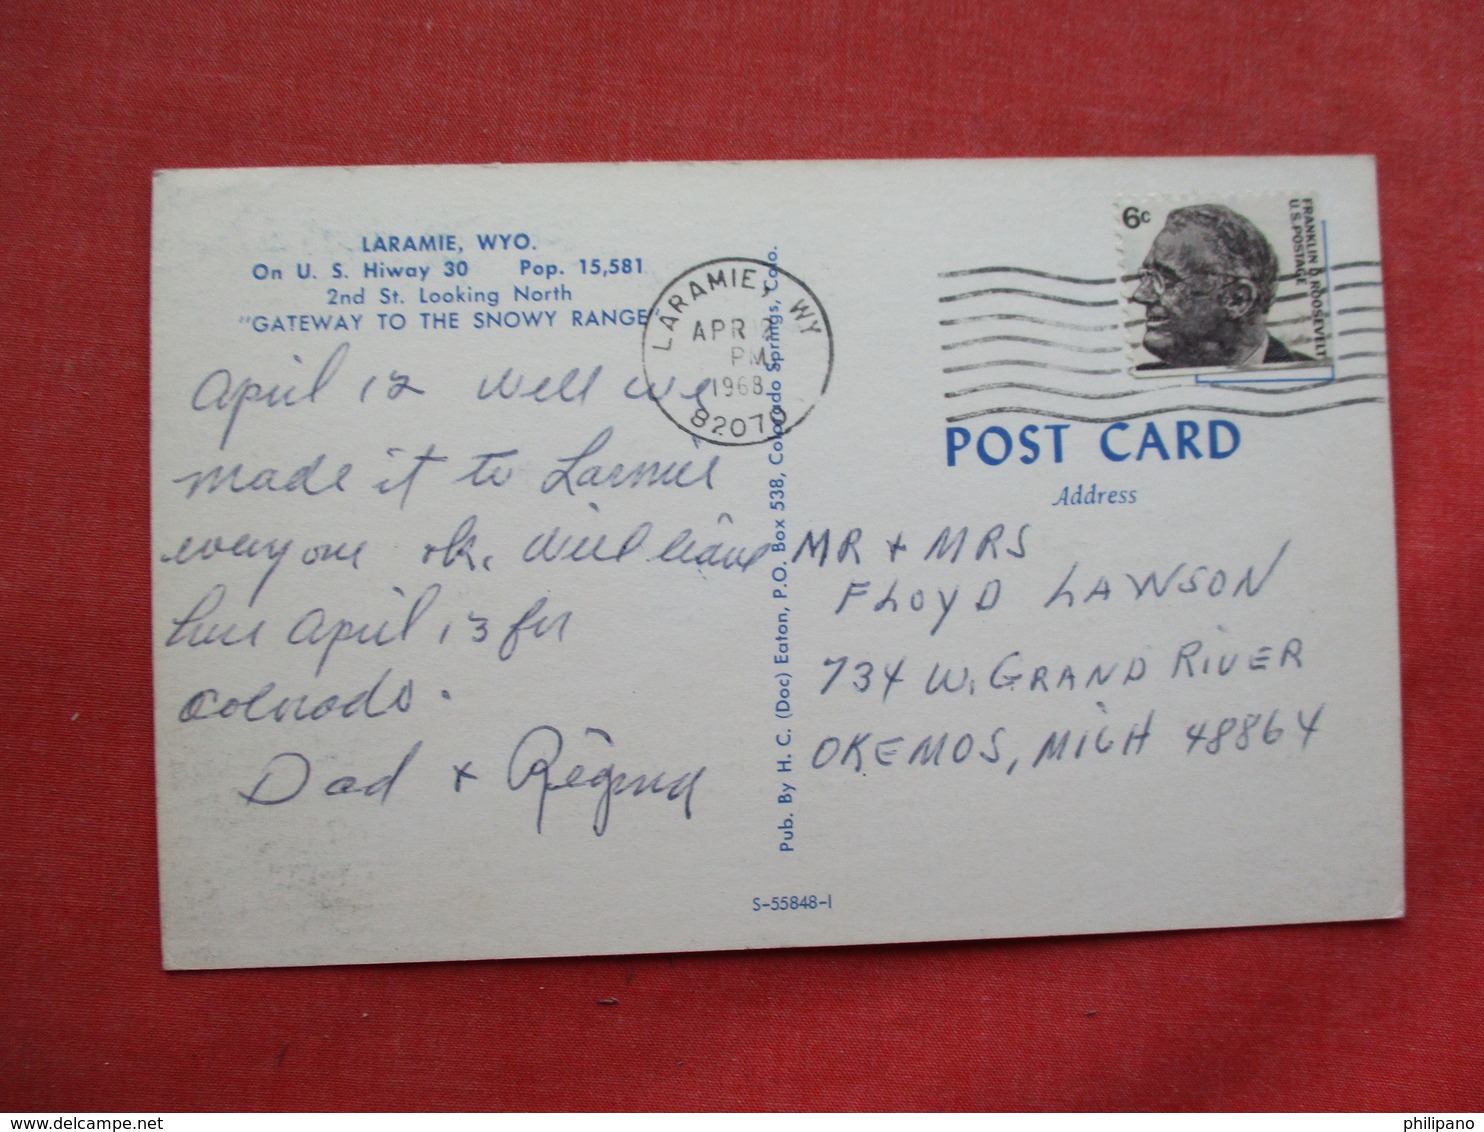 LARAMIE, WYO.
On U. S. Hiway 30 Pop. 15,581
2nd St. Looking North
"GATEWAY TO THE SNOWY RANGE"
April 12 Well we
made it to Larmie
everyone ok. Will leave
here April 13 for
Colorado.
Dad + Regina
LARAMIE, WY
APR 12
PM
1968
82070
Pub. By H. C. (Doc) Eaton, P.O. Box 538, Colorado Springs, Colo.
S-55848-1
6c
FRANKLIN D. ROOSEVELT
U.S. POSTAGE
POST CARD
Address
MR + MRS
FLOYD LAWSON
734 W. GRAND RIVER
OKEMOS, MICH 48864
philipano
www.delcampe.net